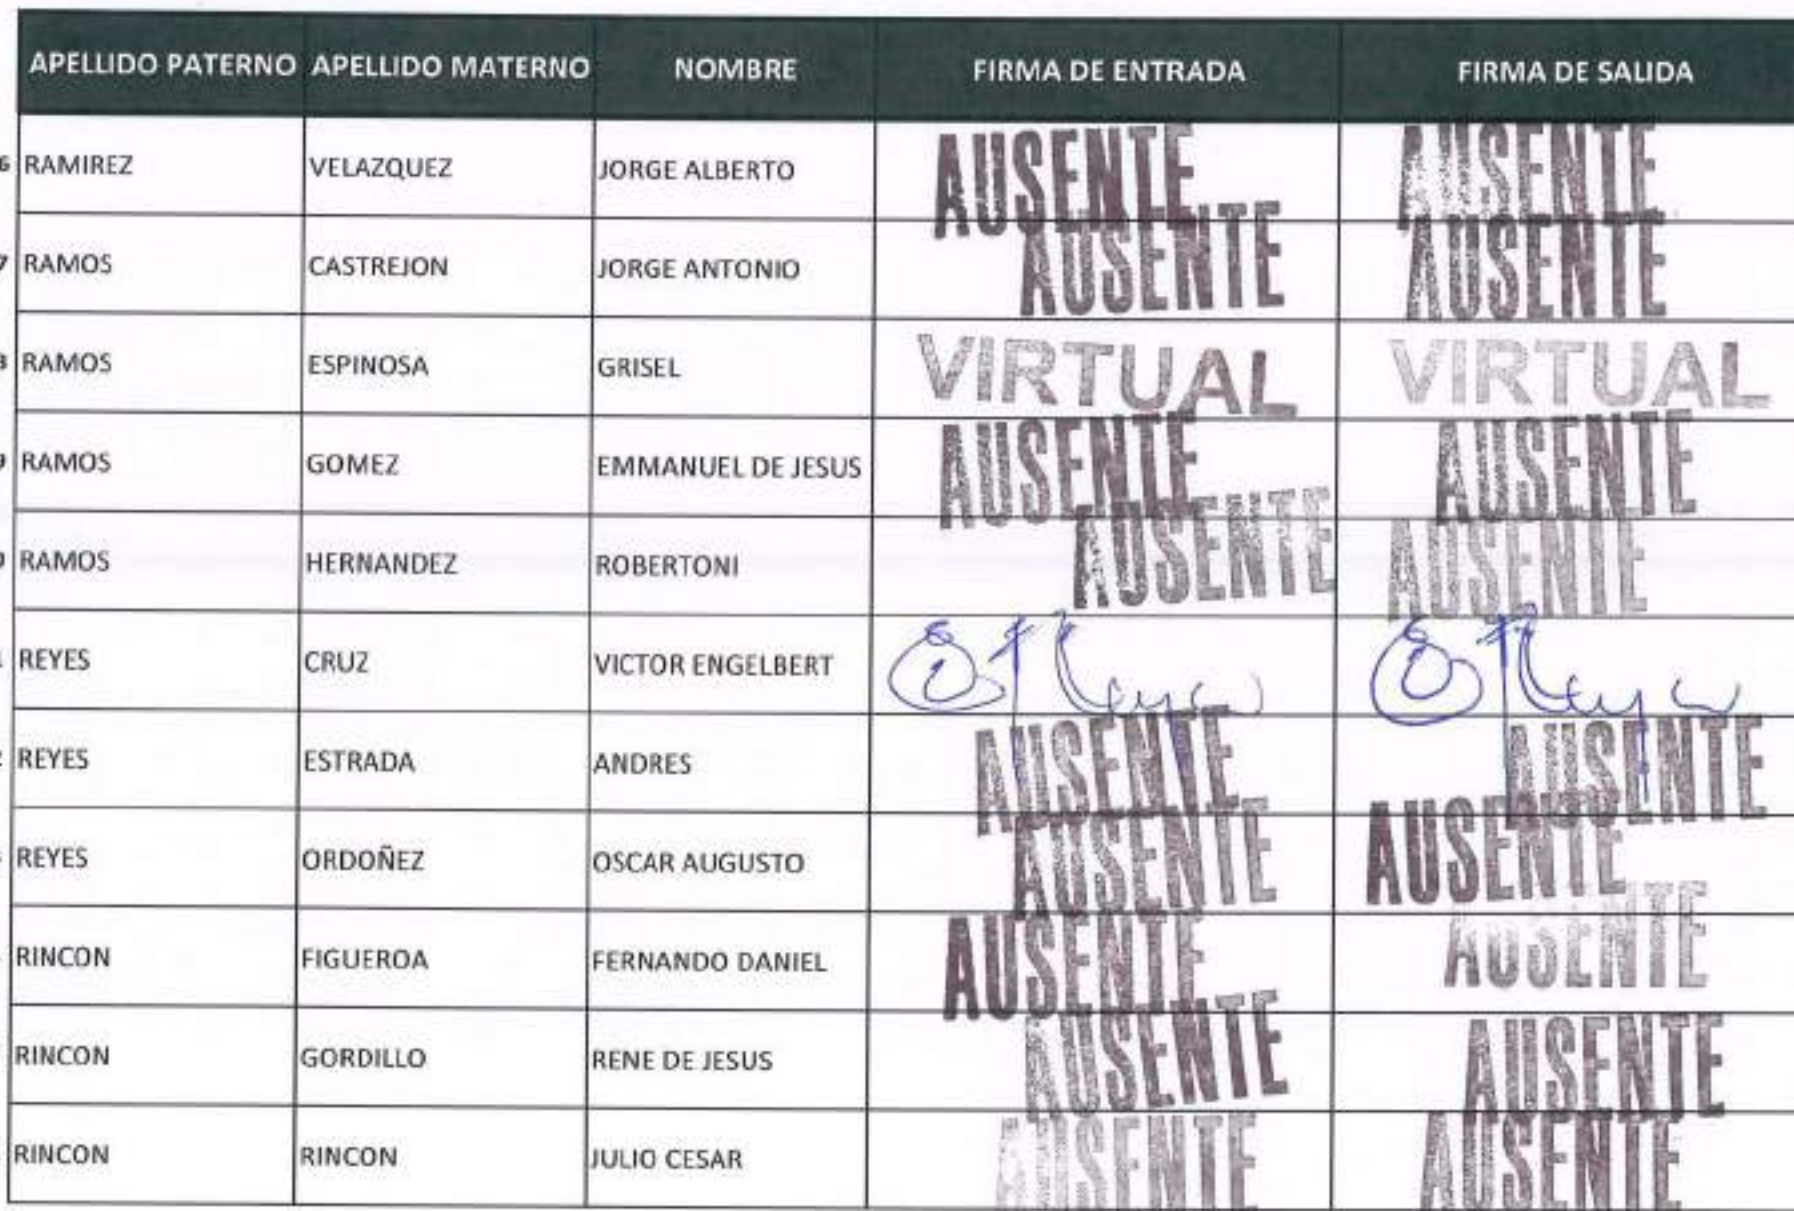 APELLIDO PATERNO APELLIDO MATERNO NOMBRE FIRMA DE ENTRADA FIRMA DE SALIDA
6 RAMIREZ VELAZQUEZ JORGE ALBERTO AUSENTE AUSENTE
7 RAMOS CASTREJON JORGE ANTONIO AUSENTE AUSENTE
RAMOS ESPINOSA GRISEL VIRTUAL VIRTUAL
RAMOS GOMEZ EMMANUEL DE JESUS AUSENTE AUSENTE
RAMOS HERNANDEZ ROBERTONI AUSENTE AUSENTE
REYES CRUZ VICTOR ENGELBERT
REYES ESTRADA ANDRES AUSENTE AUSENTE
REYES ORDOÑEZ OSCAR AUGUSTO AUSENTE AUSENTE
RINCON FIGUEROA FERNANDO DANIEL AUSENTE AUSENTE
RINCON GORDILLO RENE DE JESUS AUSENTE AUSENTE
RINCON RINCON JULIO CESAR AUSENTE AUSENTE